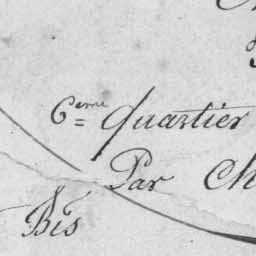 6ème Quartier
Par Ch
Bis